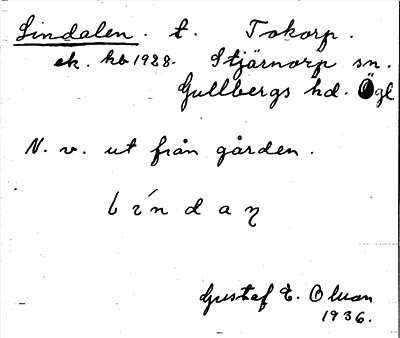 Lindalen. t. Tokorp.
ek. kb 1928. Stjärnorp sn.
Gullbergs hd. Ögl
N. v. ut från gården.
líndaɳ
Gustaf E. Olson
1936.